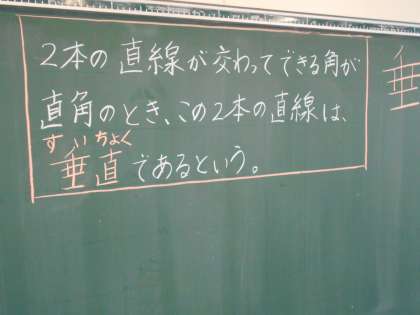 2本の直線が交わってできる角が
直角のとき、この2本の直線は、
すいちょく
垂直であるという。
垂